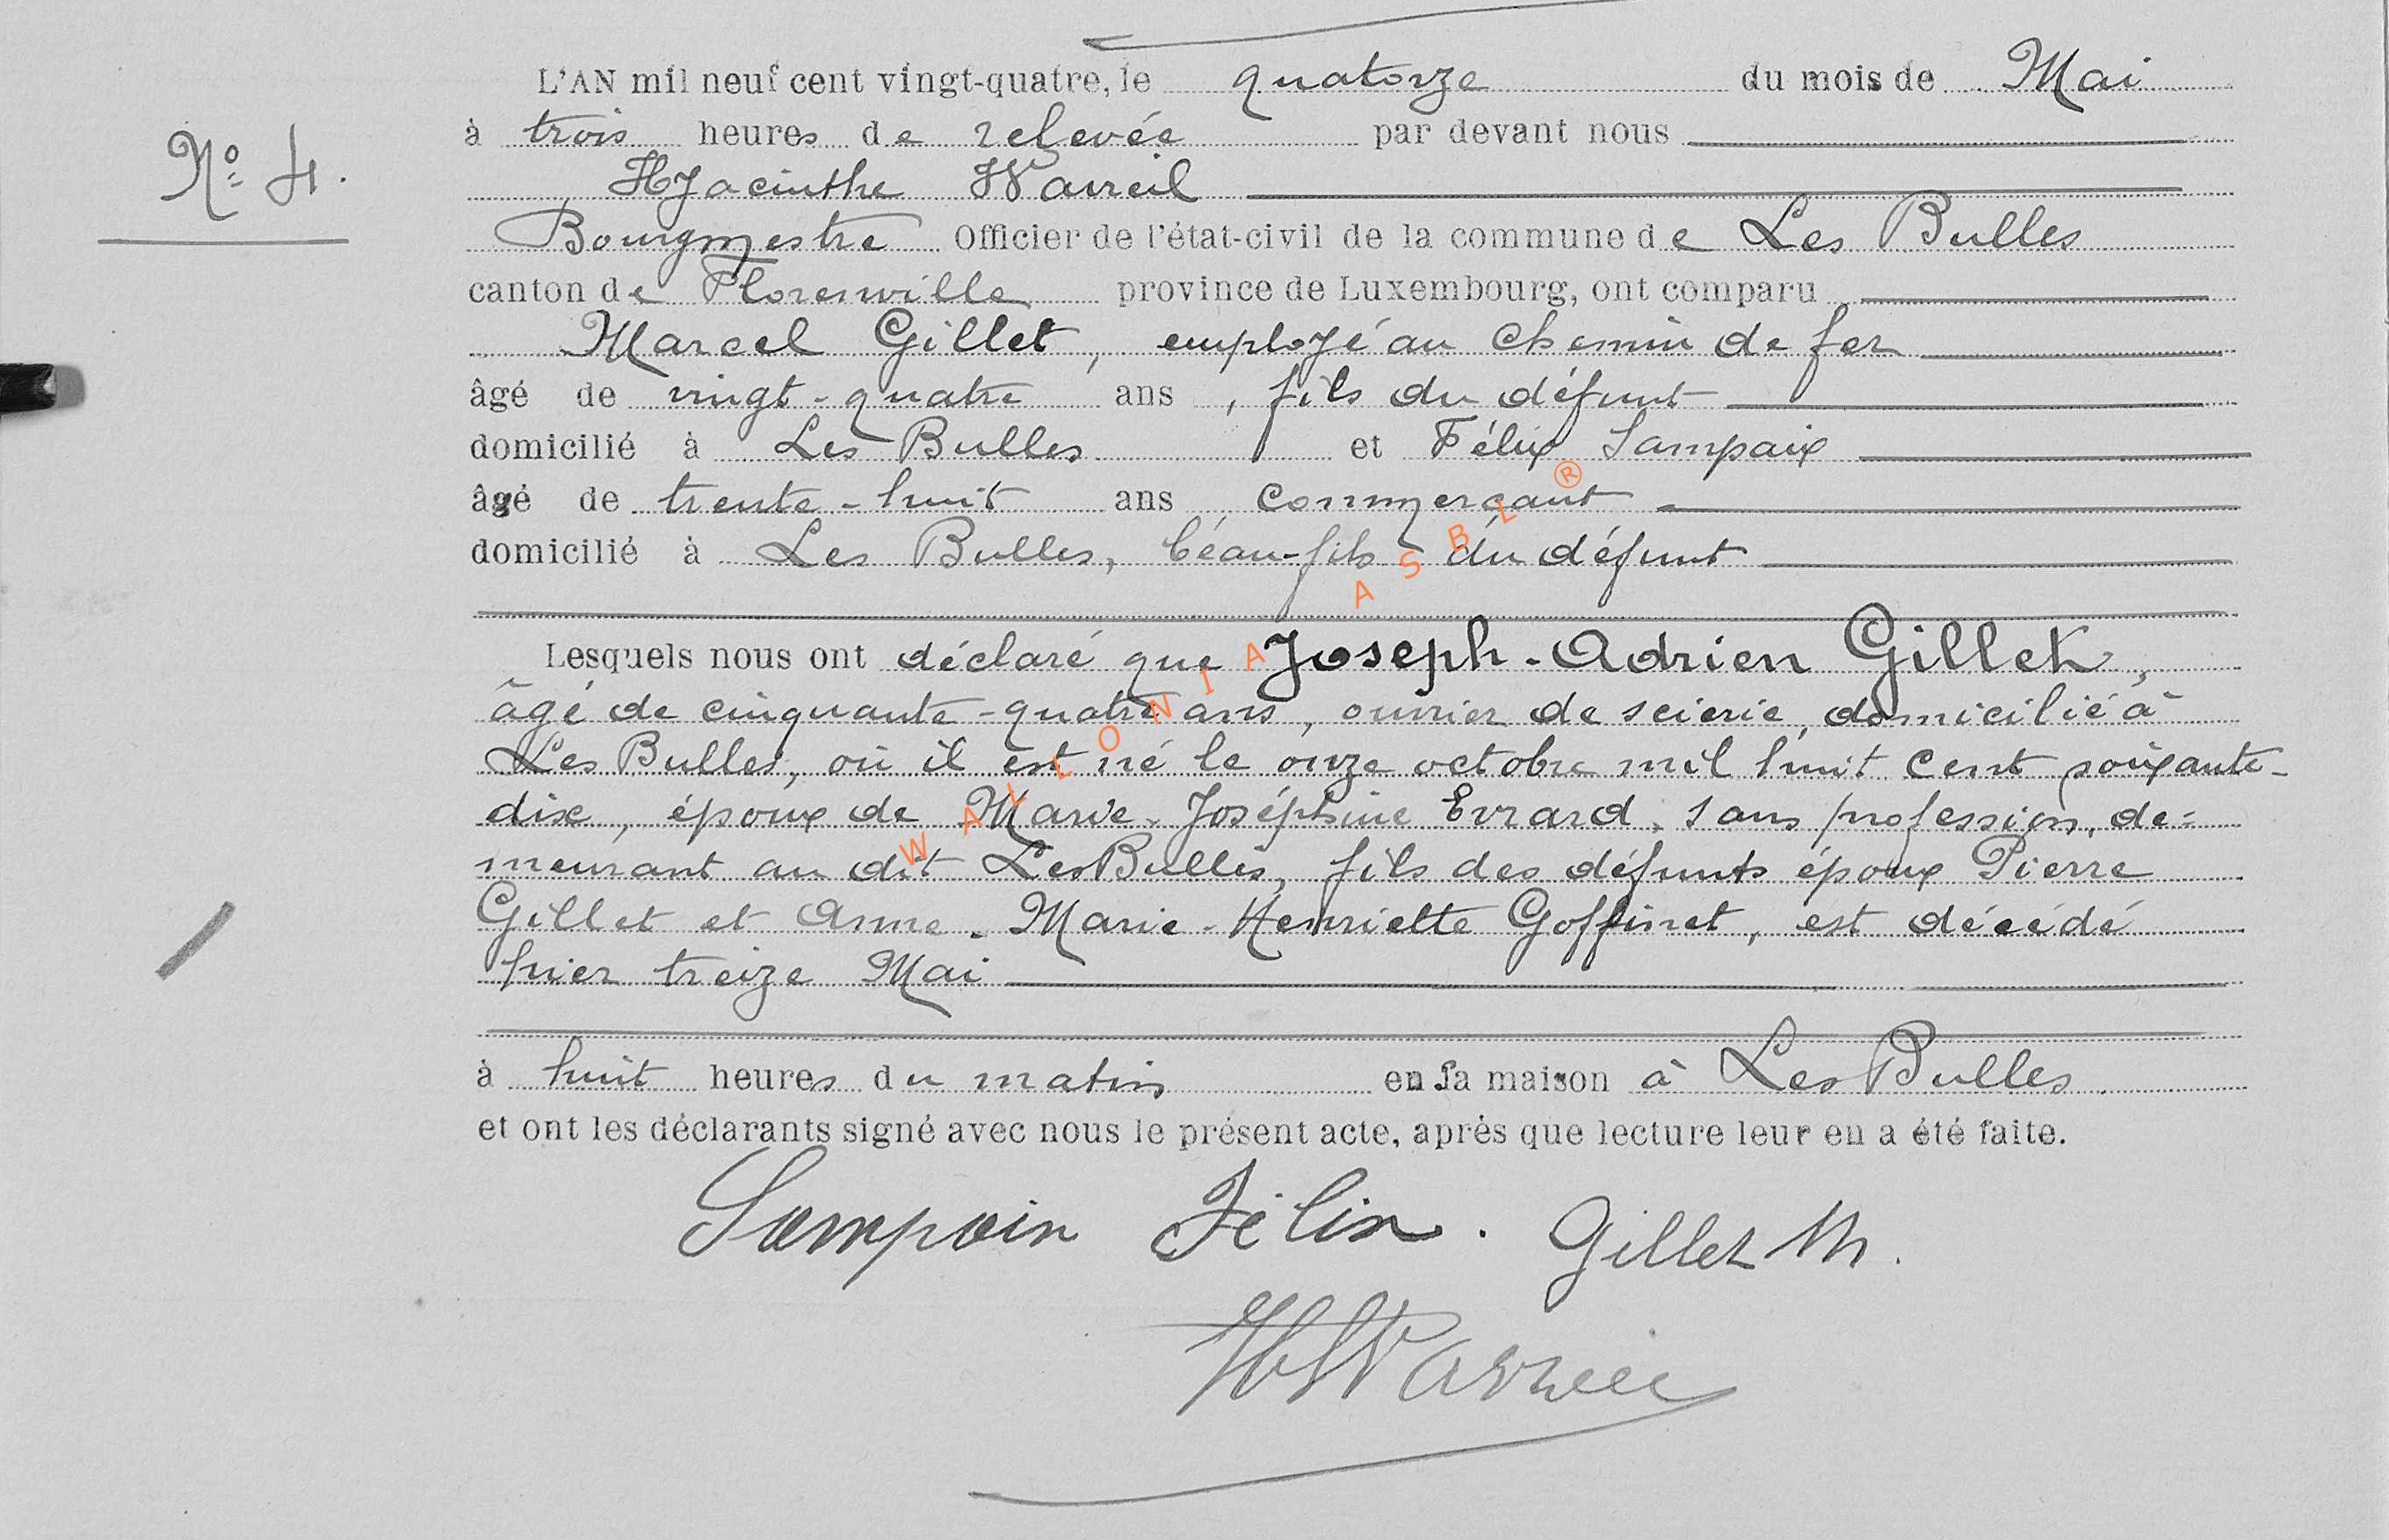 L'AN mil neuf cent vingt-quatre, le quatorze du mois de Mai
à trois heures de relevée par devant nous
N° 4.
Hyacinthe Wavreil
Bourgmestre Officier de l'état-civil de la commune de Les Bulles
canton de Florenville province de Luxembourg, ont comparu
Marcel Gillet, employé au chemin de fer
âgé de vingt-quatre ans, fils du défunt
domicilié à Les Bulles et Félix Sampaix
âgé de trente-huit ans commerçant
domicilié à Les Bulles, béau-fils du défunt
Lesquels nous ont déclaré que Joseph-Adrien Gillet,
âgé de cinquante-quatre ans, ouvrier de scierie, domicilié à
Les Bulles, où il est né le onze octobre mil huit cent soixante-
dix, époux de Marie-Joséphine Evrard, sans profession, de=
meurant au dit Les Bulles, fils des défunts époux Pierre
Gillet et Anne-Marie-Henriette Goffinet, est décédé
hier treize Mai
à huit heures du matin en sa maison à Les Bulles
et ont les déclarants signé avec nous le présent acte, après que lecture leur en a été faite.
Sampaix Félix. Gillet M.
H Wavreil
WALLONIA ASBL ®